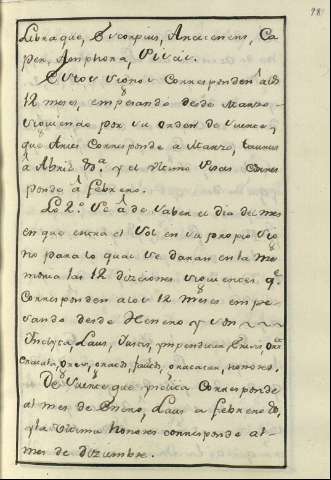 98
Libraque, Scorpius, Arcitenens, Ca
per, Amphora, Piscis.
Estos signos corresponden a los
12 meses, empesando desde Marzo
siguiendo por su orden de suerte,
que Aries corresponde à Marzo, taurus
à Abril &a. y el ultimo Piscis corres
ponde à febrero.
Lo 2º. se à de saber el dia del mes
en que entra el Sol en su propio sig
no para lo qual se daran en la me
moria las 12 dicciones siguientes qe.
corresponden a los 12 meses empe
sando desde Henero y son
Inclyta, Laus, Justis, impenditur,
de suerte que Inclita corresponde
al mes de Enero, Laus a febrero &,
y la ultima honores corresponde al
mes de diziembre.